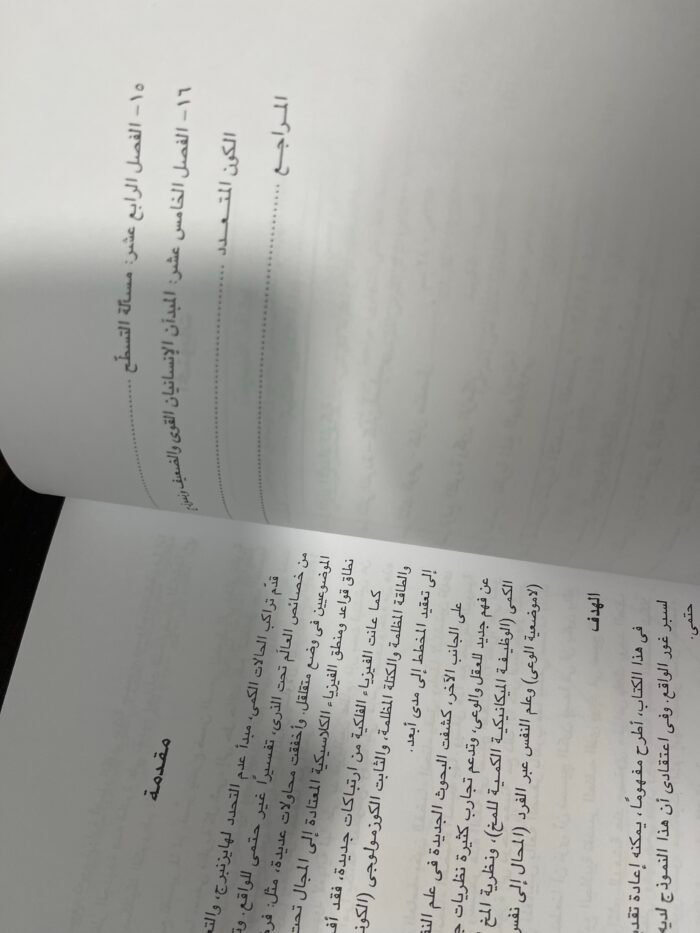 ١٥- الفصل الرابع عشر: مسألة التسطّح
١٦- الفصل الخامس عشر: المبدآن الإنسانيان القوى والضعيف
الكون المتعدد
المراجع
مقدمة
قدّم تراكب الحالات الكمى، مبدأ عدم التحدد لهايزنبرج،
من خصائص العالم تحت الذرى، تفسيراً غير حتمى للواقع.
الموضوعيين فى وضع متقلقل. وأخفقت محاولات عديدة، مثل:
نطاق قواعد ومنطق الفيزياء الكلاسيكية المعتادة إلى المجال تحت
كما عانت الفيزياء الفلكية من ارتباكات جديدة، فقد
والطاقة المظلمة والكتلة المظلمة، والثابت الكوزمولوجى
إلى تعقيد المخطط إلى مدى أبعد.
على الجانب الآخر، كشفت البحوث الجديدة فى علم
عن فهم جديد للعقل والوعى، وتدعم تجارب كثيرة نظريات
الكمى (الوظيفية الميكانيكية الكمية للمخ)، ونظرية المخ
(لاموضعية الوعى) وعلم النفس عبر الفرد (المحال إلى
الهدف
فى هذا الكتاب، أطرح مفهوماً، يمكنه إعادة
لسبر غور الواقع. وفى اعتقادى أن هذا النموذج لديه
حتمى.